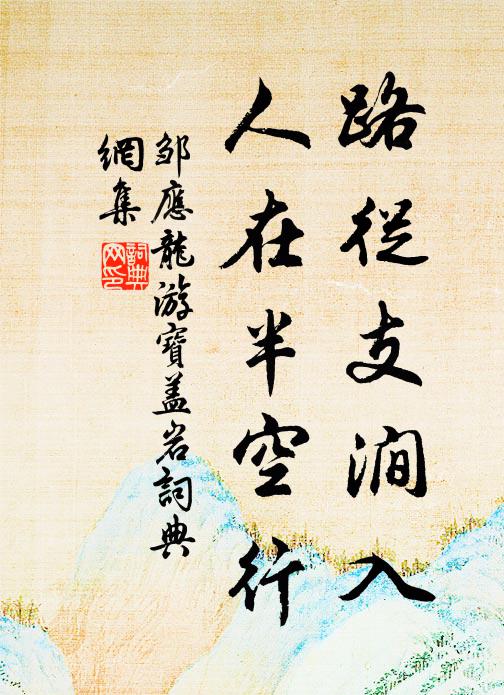 路從支澗入
人在半空行
邹應龍游寶盖岩詞典
網集
詞典
网印